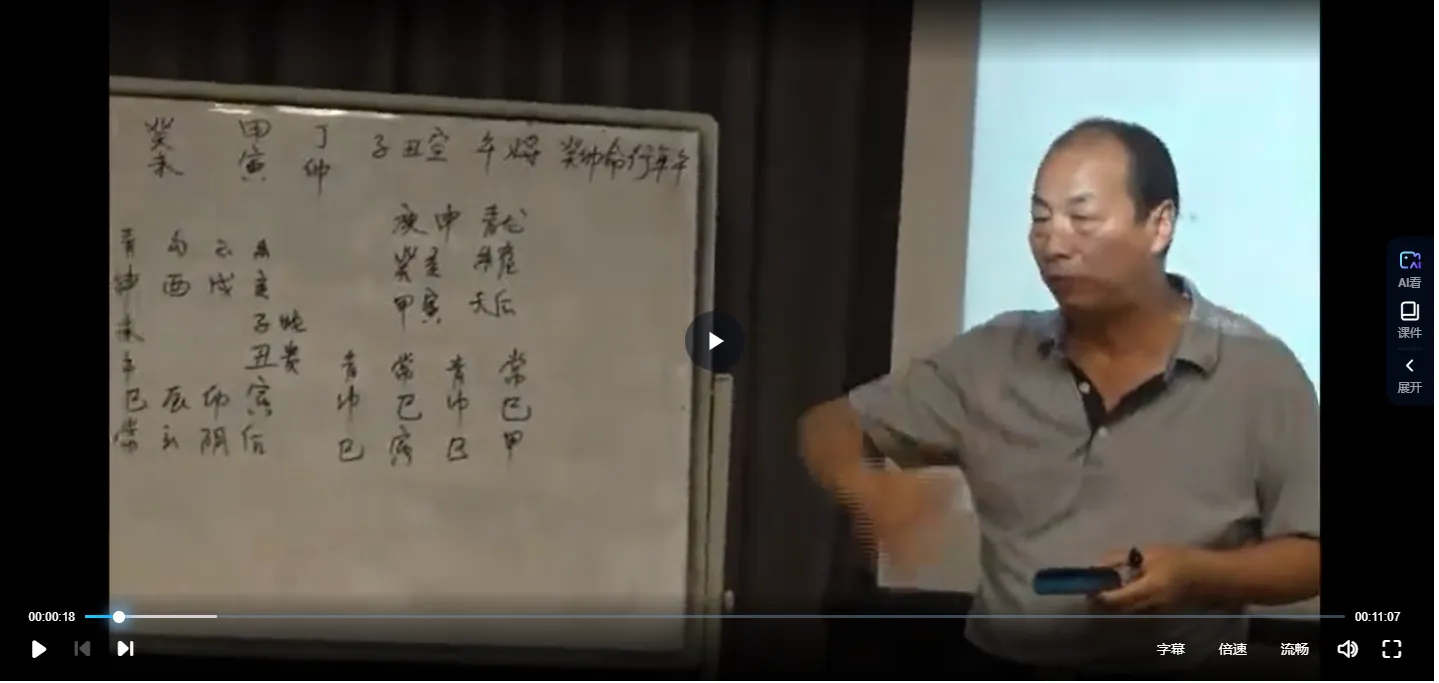 癸 甲 丁 子丑空 午将 癸卯命行年午
未 寅 卯
庚申 青龙
癸亥 朱雀
甲寅 天后
青 勾
申 酉 戌 亥
未 子蛇
午 丑贵
巳 辰 卯 寅
常 玄 阴 后
青 常 青 常
申 巳 申 巳
巳 寅 巳 甲
AI看
课件
展开
00:00:18
00:11:07
字幕 倍速 流畅